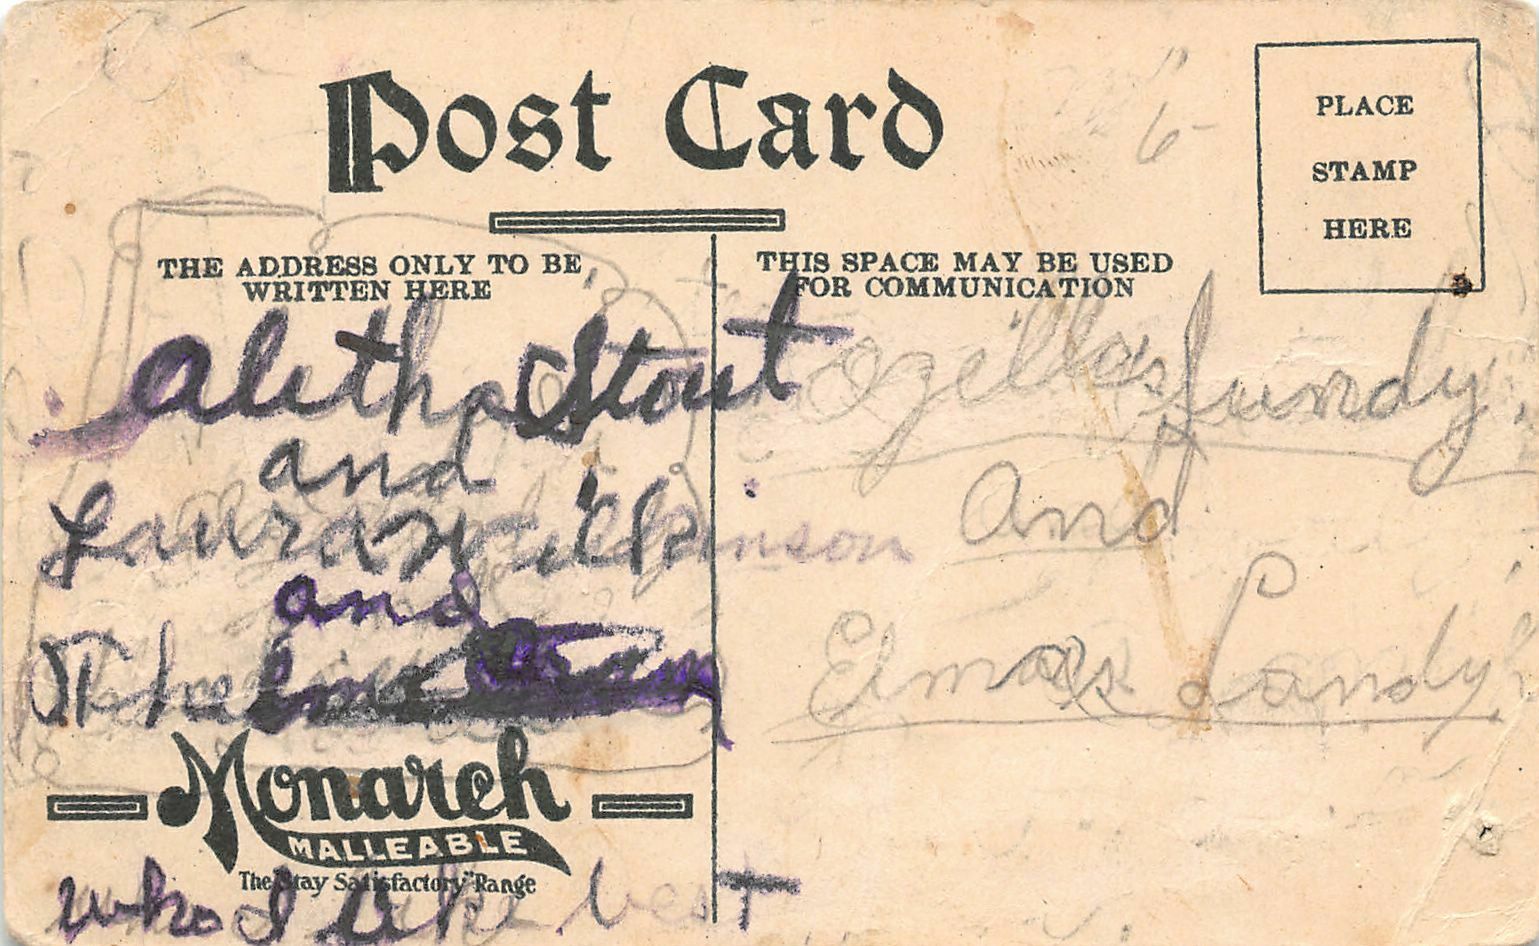 Post Card
PLACE
STAMP
HERE
6
THE ADDRESS ONLY TO BE
WRITTEN HERE
THIS SPACE MAY BE USED
FOR COMMUNICATION
Aletha Stout
and
Laura Wilkinson
and
Thelma
Monarch
MALLEABLE
The "Stay Satisfactory" Range
who I like best
Ogilla
and
Elmas Landy